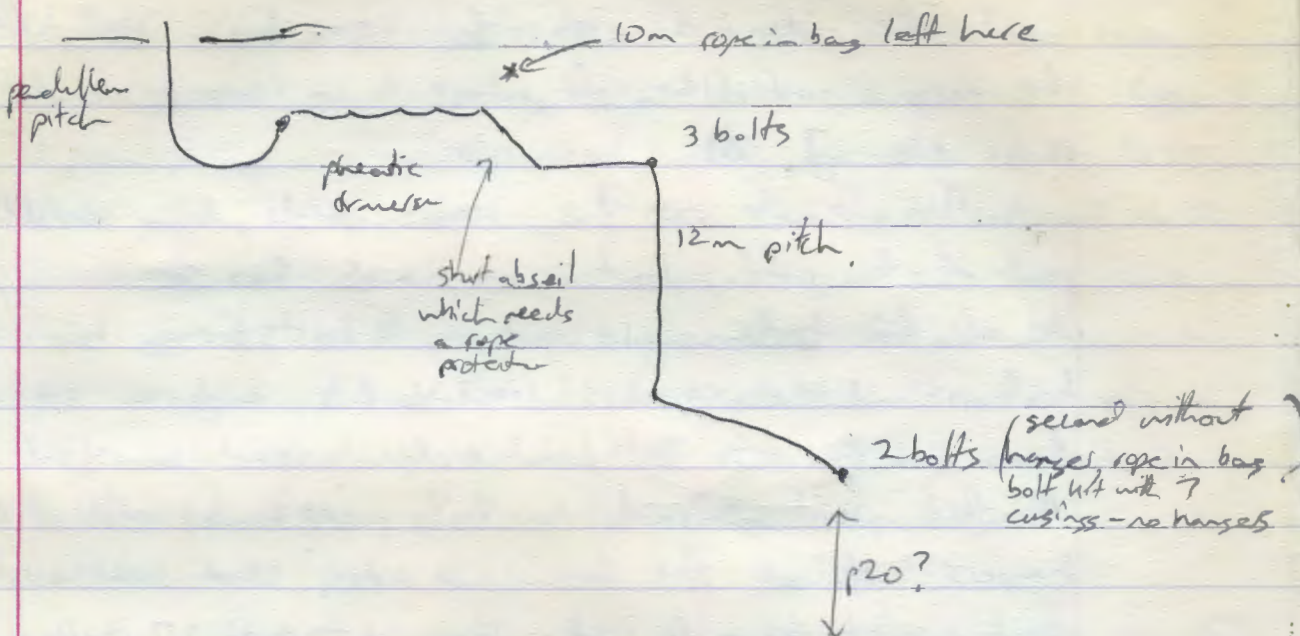 10m rope in bag left here
pendulum
pitch
3 bolts
phreatic
traverse
12m pitch.
short abseil
which needs
a rope
protector
2 bolts (second without
hanger, rope in bag,
bolt kit with 7
casings - no hangers)
p20?